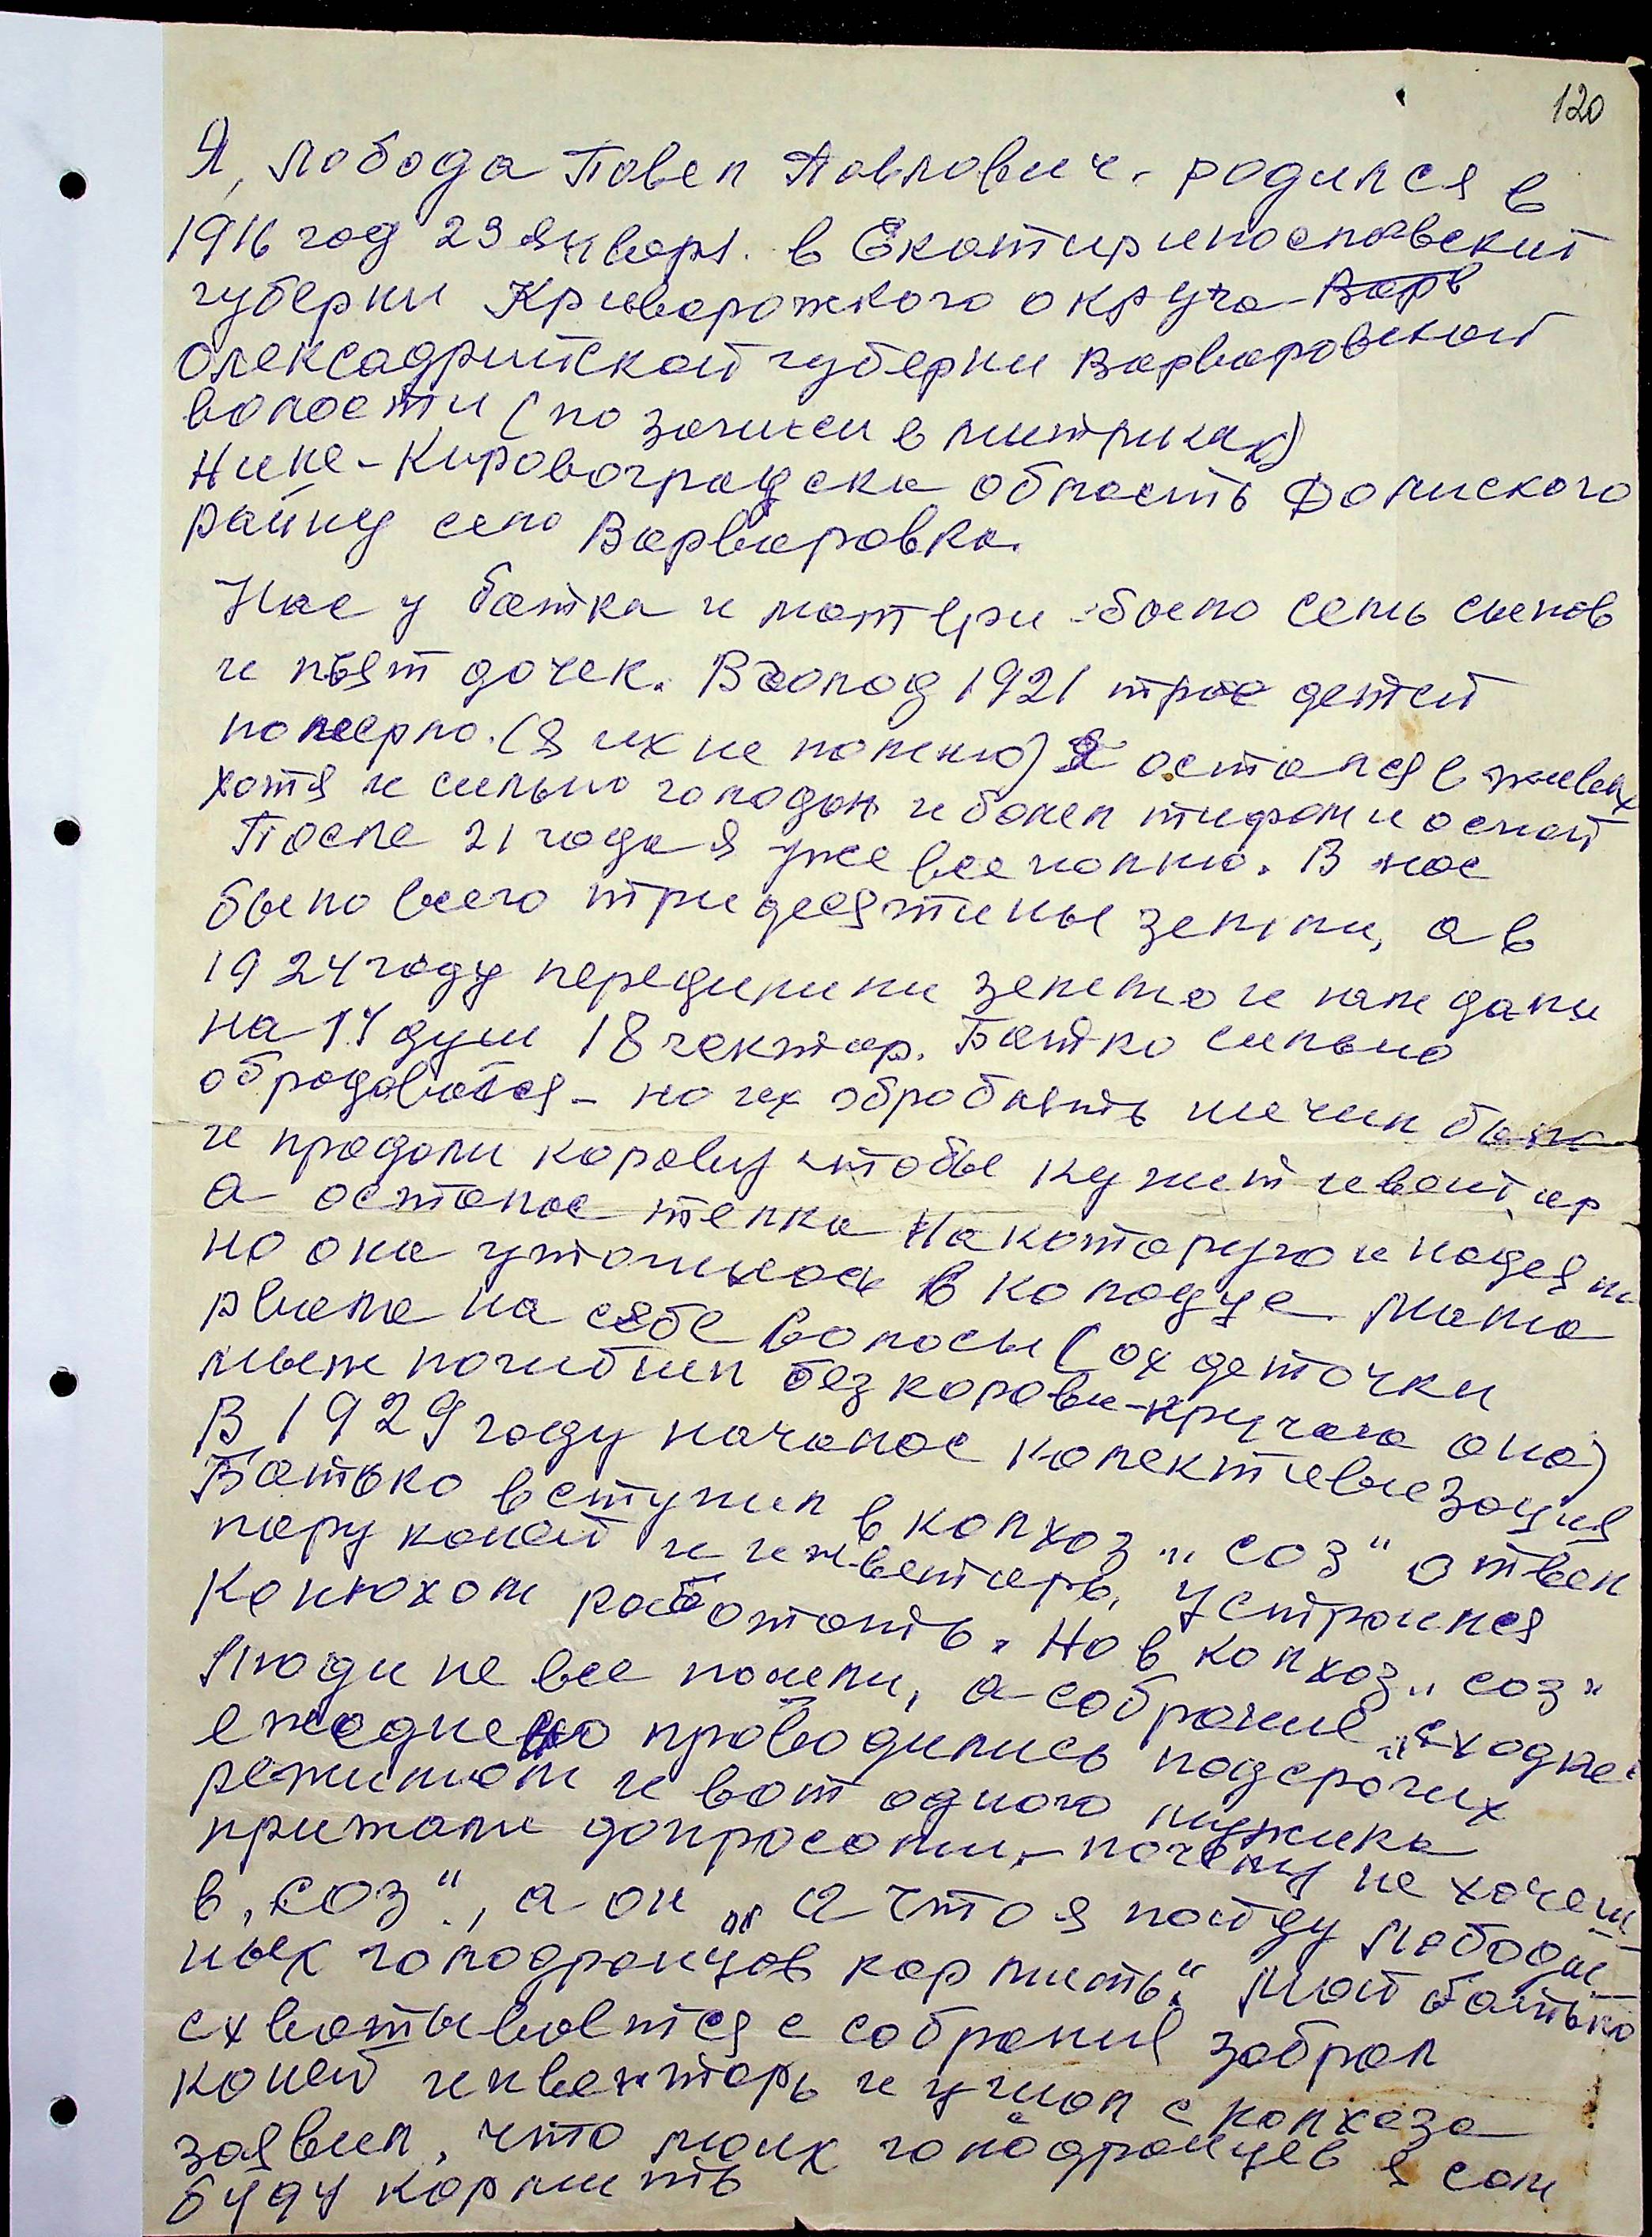 120
Я, Лобода Павел Павлович. родился в
1916 год 23 январ. в Екатиринославскит
губерни Криворожкого округа Варв
Олексадрийской губерни Варваровской
волости (по записи в митриках)
Нине - Кировоградска область Долиского
району село Варваровка.
Нас у батка и матери было семь сынов
и пъят дочек. В голод 1921 трое детей
померло. (Я их не помню) Я остался в живых
хотя и сильно голодон и болел тифом и оспой
После 21 года я уже все помню. В нас
было всего три десятины земли, а в
1924 году передилили землю и нам дали
на 14 душ 18 гектар. Батко сильно
обрадовался - но их обробаять ничим было
и продали корову чтобы купит инвентар
а осталос телка на которую и надеяли
но она утопилося в колодце Мама
рвала на себе волосы (ох деточки
мыж погибнем без корови - кричала она)
В 1929 году началос колективизация
Батько вступил в колхоз „соз" отвел
пару коней и инвентарь, устроился
конюхом работать. Но в колхоз „соз"
люди не все пошли, а собрание „сходке"
ежеднево проводились под строгих
режимом и вот одного мужика
прижали допросами, - почему не хочеш
в „соз", а он „а что я пойду Лободи
ных голодранцов кормить". Мой батько
схватывается с собрания забрал
коней инвентарь и ушол с колхоза
заявил, что моих голодранцев я сам
буду кормить